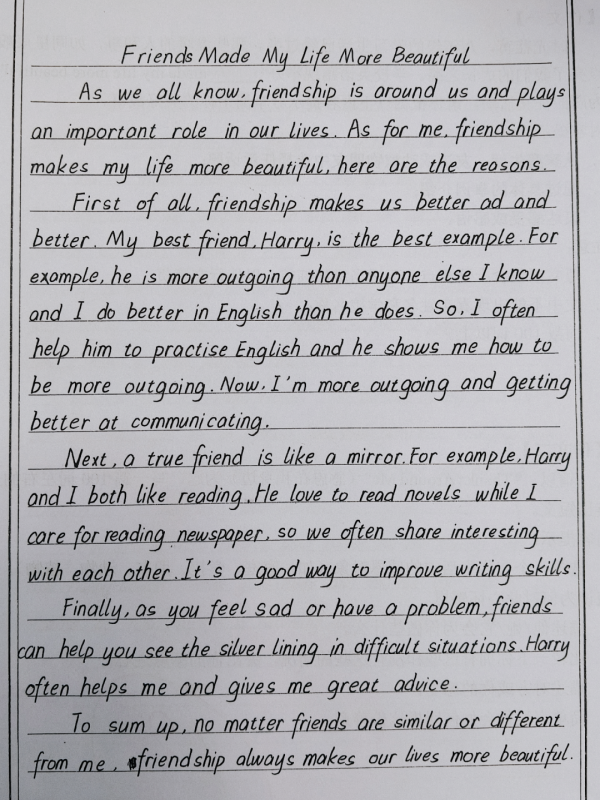 Friends Made My Life More Beautiful
As we all know, friendship is around us and plays
an important role in our lives. As for me, friendship
makes my life more beautiful, here are the reasons.
First of all, friendship makes us better ad and
better. My best friend, Harry, is the best example. For
example, he is more outgoing than anyone else I know
and I do better in English than he does. So, I often
help him to practise English and he shows me how to
be more outgoing. Now, I'm more outgoing and getting
better at communicating.
Next, a true friend is like a mirror. For example, Harry
and I both like reading. He love to read novels while I
care for reading newspaper, so we often share interesting
with each other. It's a good way to improve writing skills.
Finally, as you feel sad or have a problem, friends
can help you see the silver lining in difficult situations. Harry
often helps me and gives me great advice.
To sum up, no matter friends are similar or different
from me, friendship always makes our lives more beautiful.